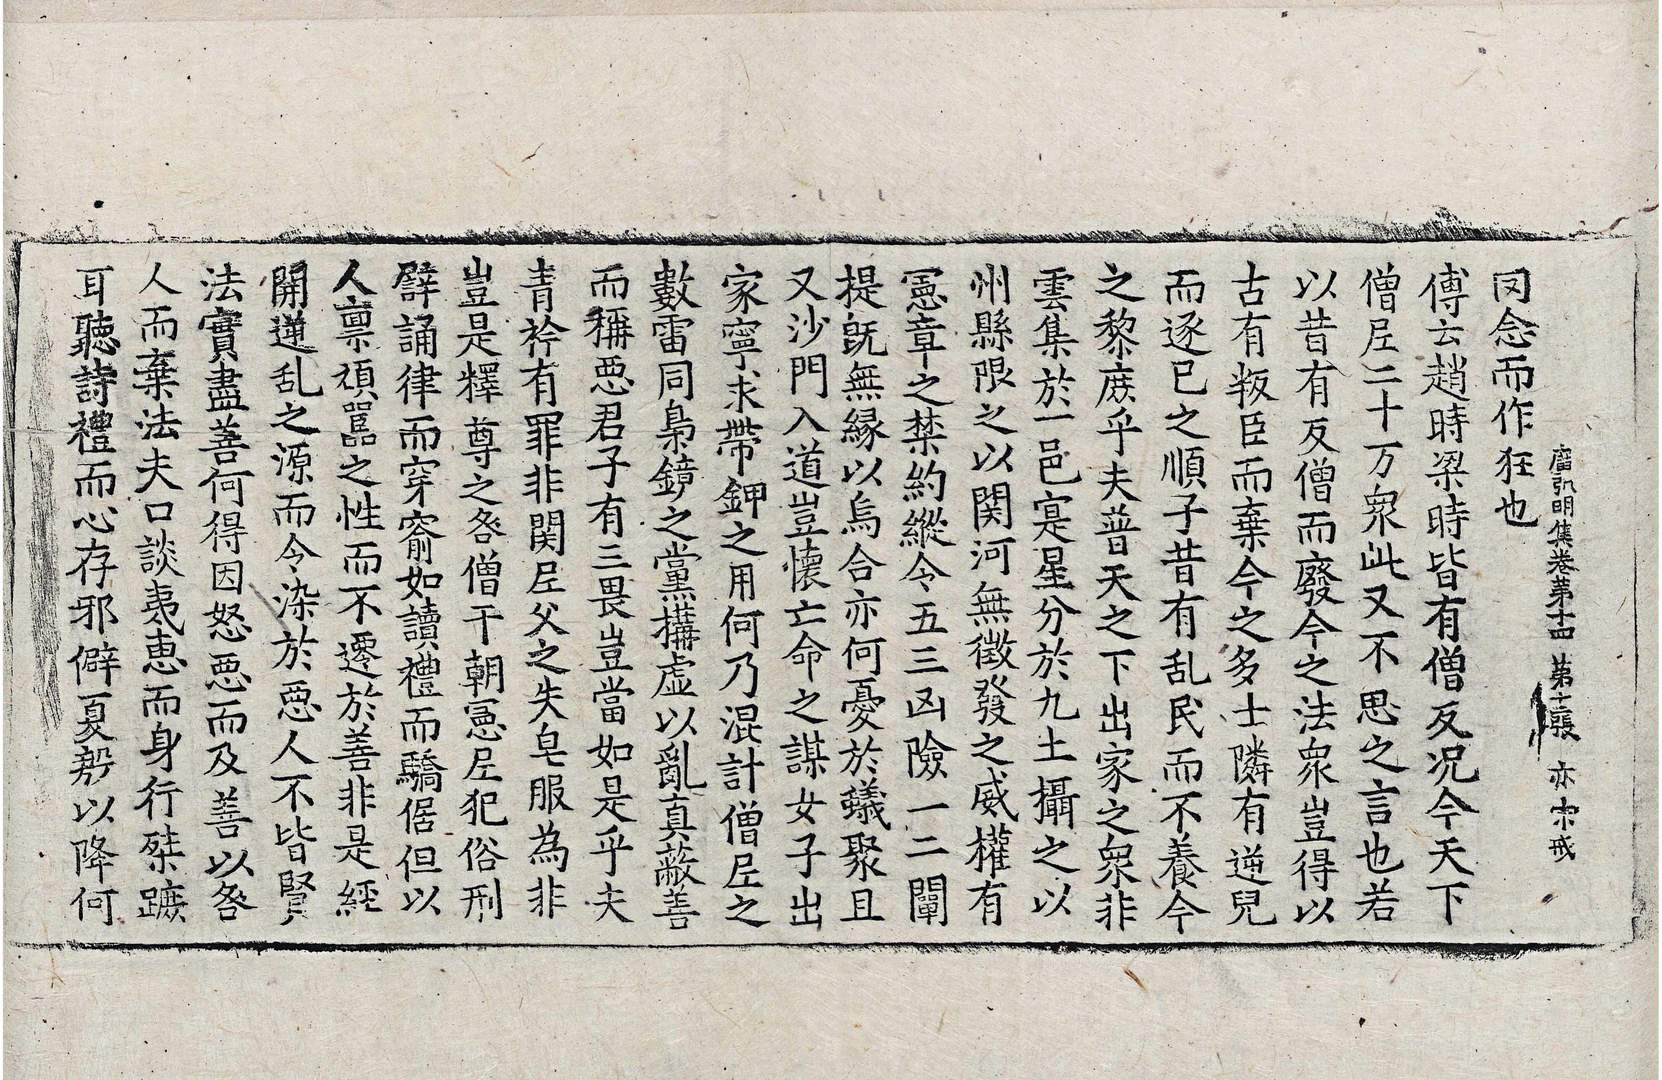 廣弘明集卷第十四 第十張 亦 宗戒
罔念而作狂也
傅云趙時梁時皆有僧反况今天下
僧尼二十万衆此又不思之言也若
以昔有反僧而廢今之法衆豈得以
古有叛臣而棄今之多士隣有逆兒
而逐已之順子昔有乱民而不養今
之黎庶乎夫普天之下出家之衆非
雲集於一邑寔星分於九土攝之以
州縣限之以関河無徴發之威權有
憲章之禁約縱令五三凶險一二闡
提旣無縁以烏合亦何憂於蟻聚且
又沙門入道豈懷亡命之謀女子出
家寧求帶鉀之用何乃混計僧尼之
數雷同梟鏡之黨搆虛以亂真蔽善
而稱惡君子有三畏豈當如是乎夫
青衿有罪非関尼父之失皂服為非
豈是釋尊之咎僧干朝憲尼犯俗刑
譬誦律而穿窬如讀禮而驕倨但以
人禀頑嚚之性而不遷於善非是經
開逆乱之源而令染於惡人不皆賢
法實盡善何得因怒惡而及善以咎
人而棄法夫口談夷惠而身行桀蹠
耳聽詩禮而心存邪僻夏殷以降何